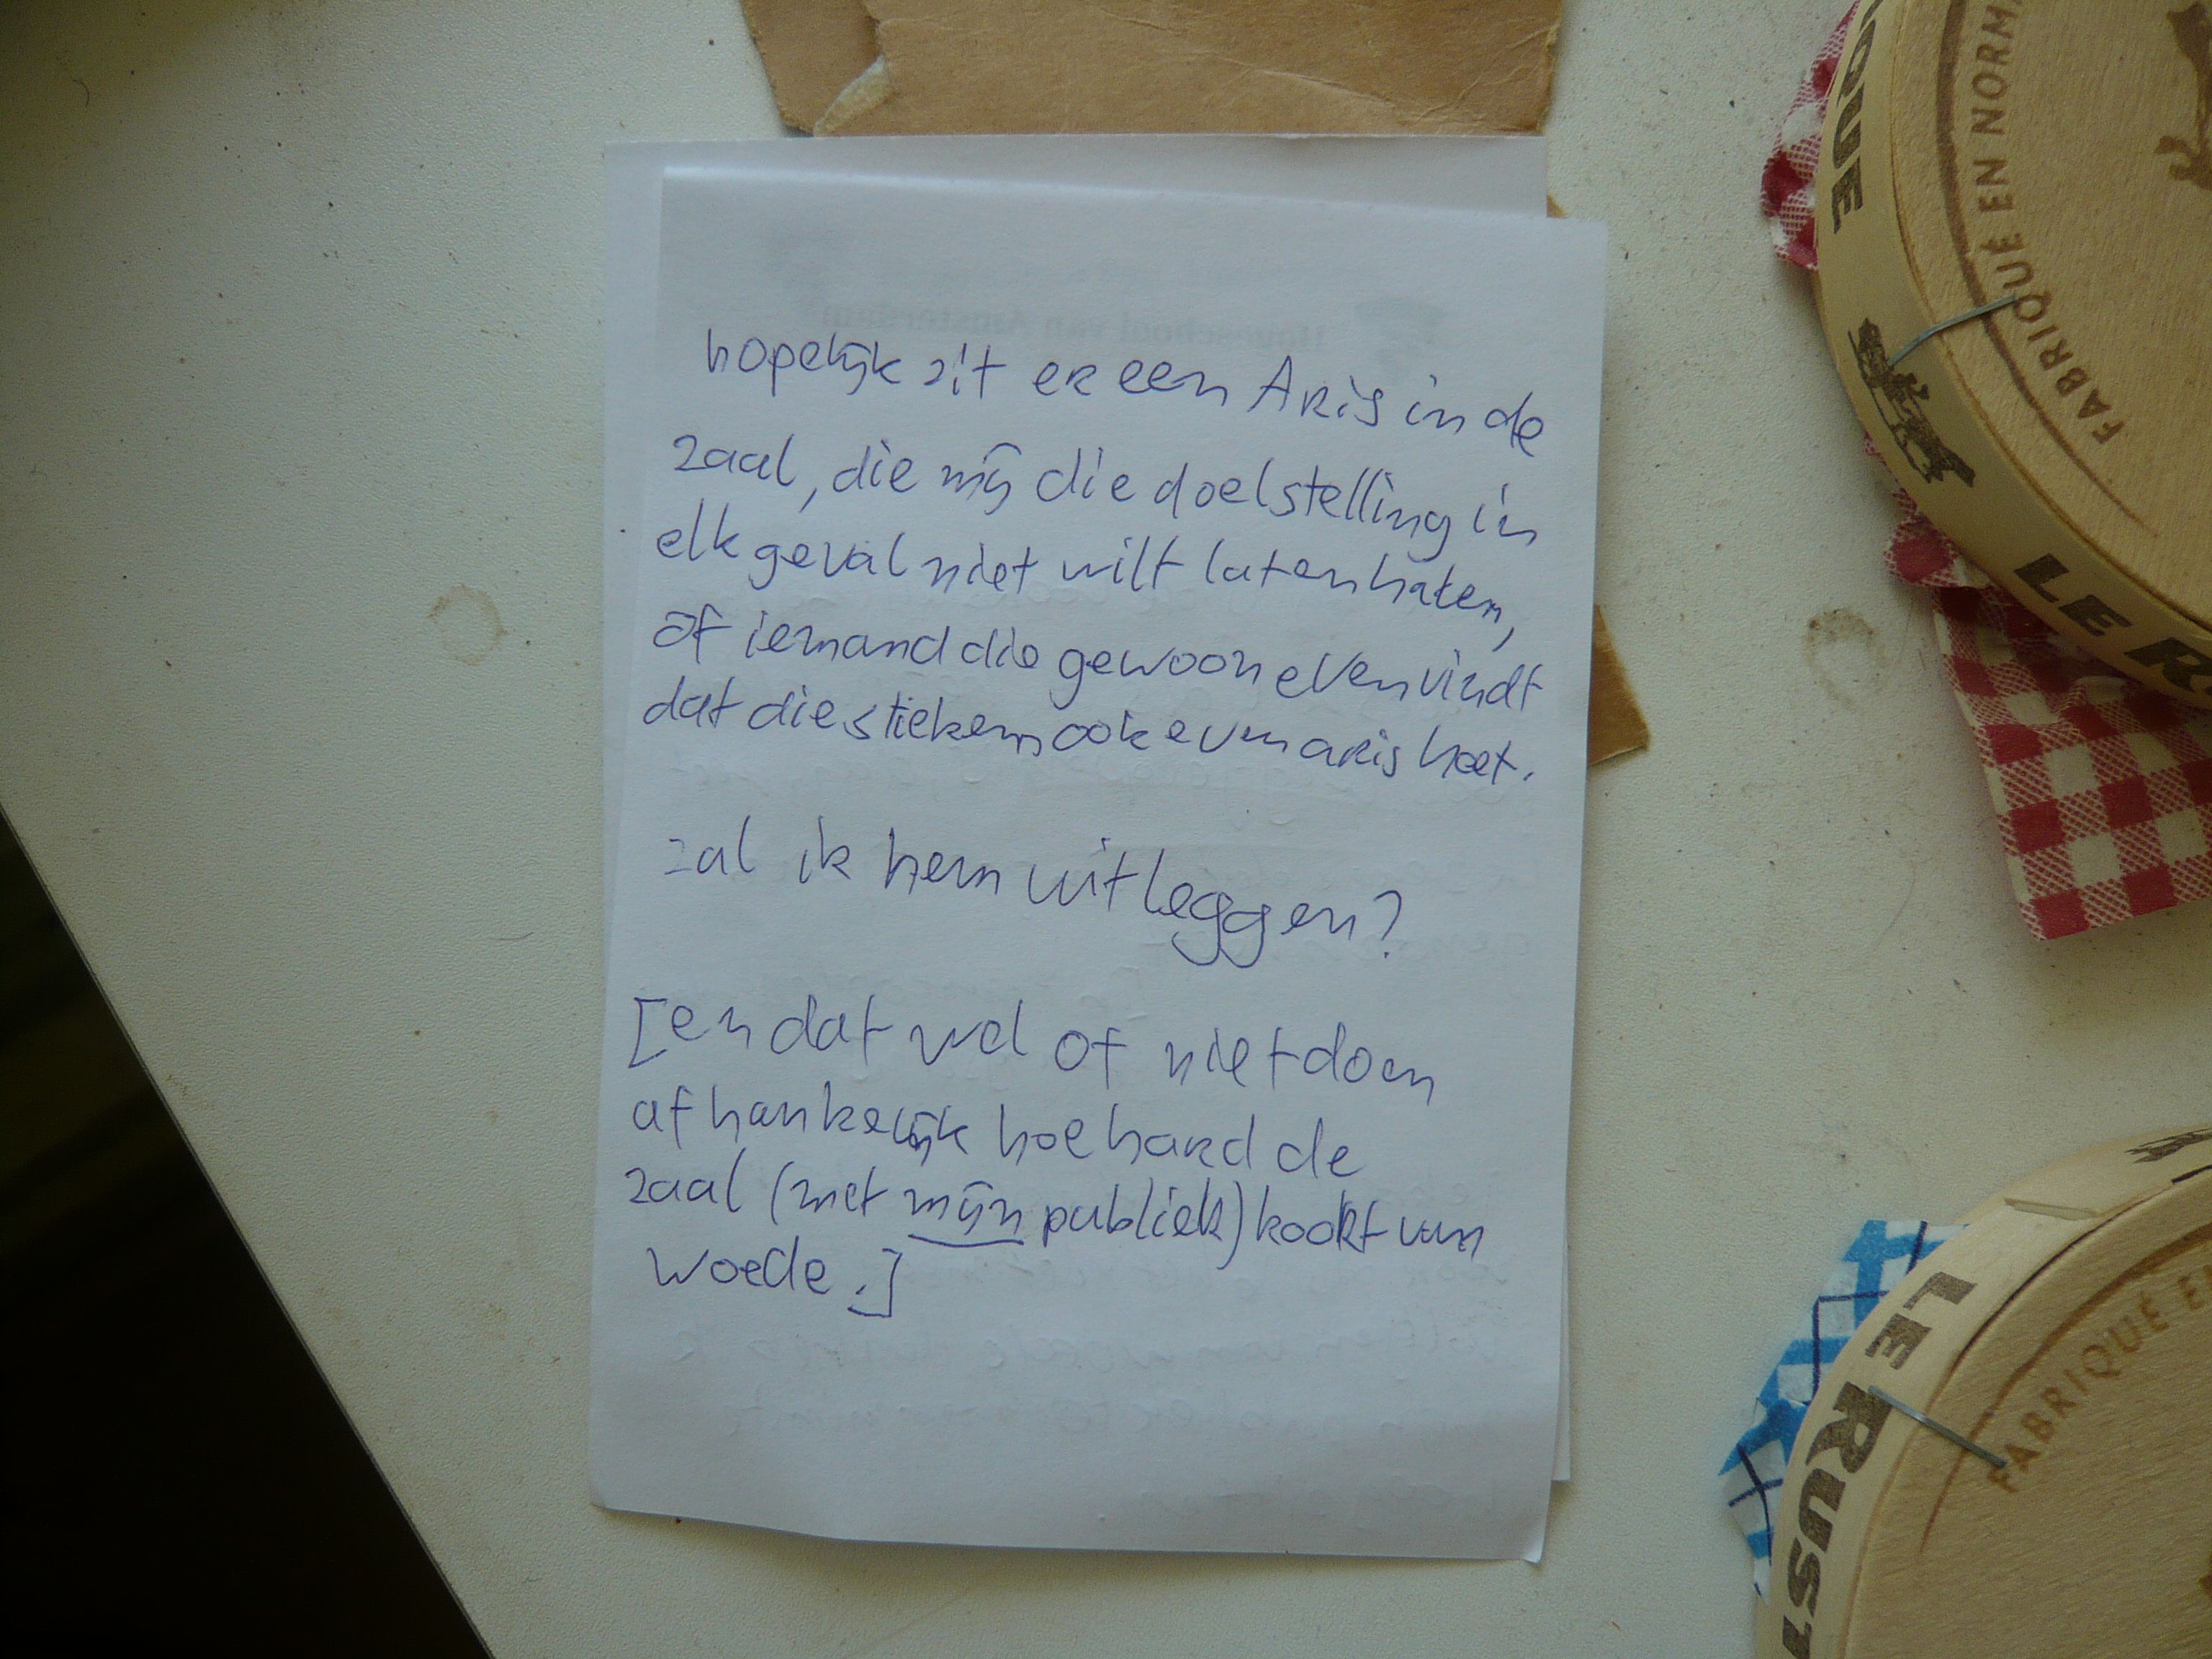 hopelijk zit er een Aris in de
zaal, die mij die doelstelling in
elk geval niet wilt laten halen,
of iemand die gewoon even vindt
dat die stiekem ook even aris heet.
zal ik hem uitleggen?
[en dat wel of niet doen
afhankelijk hoe hard de
zaal (met mijn publiek) kookt van
woede.]
Hogeschool van Amsterdam
QUE
FABRIQUÉ EN NORM
LE R
LE RUST
FABRIQUÉ E